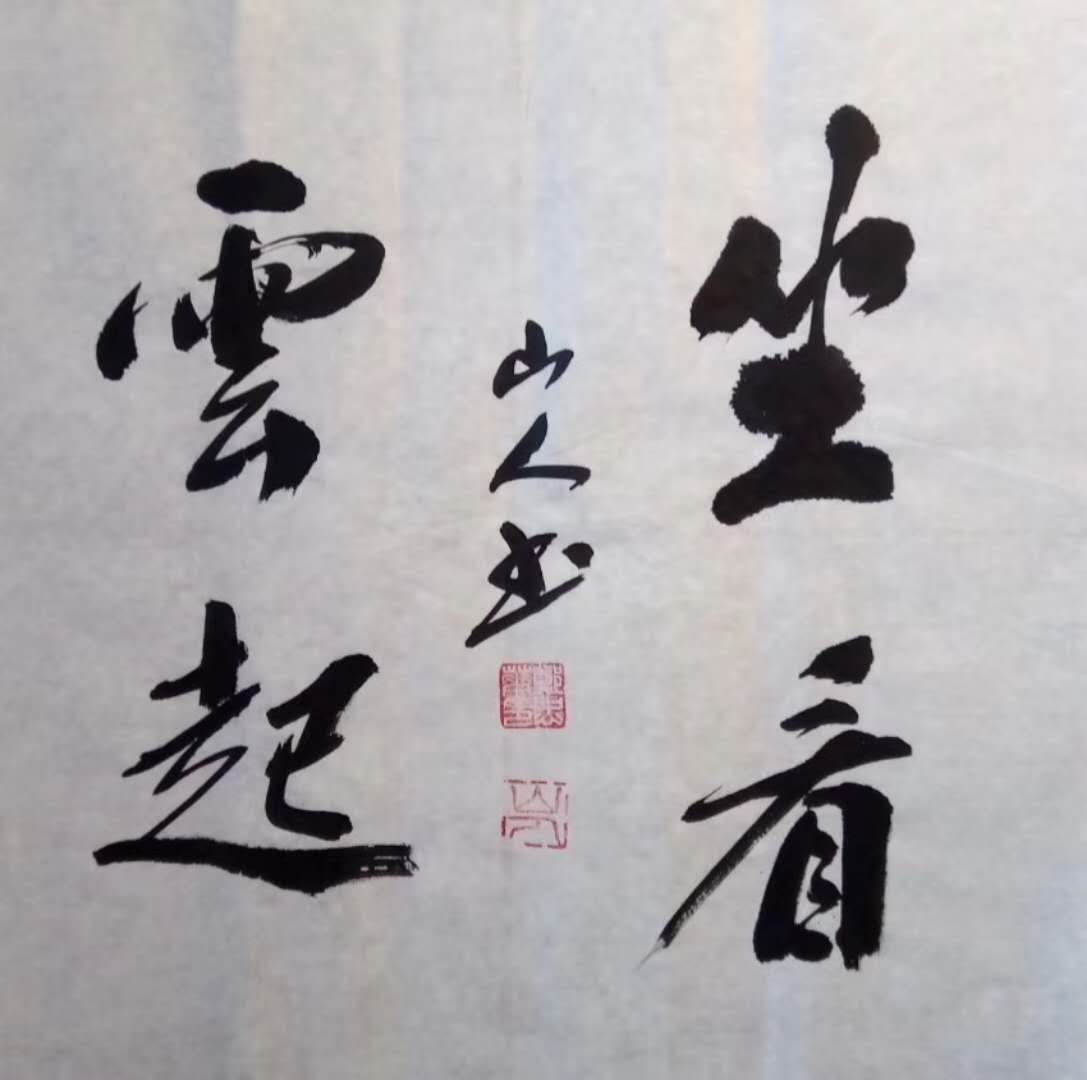 坐看
雲起
山人书